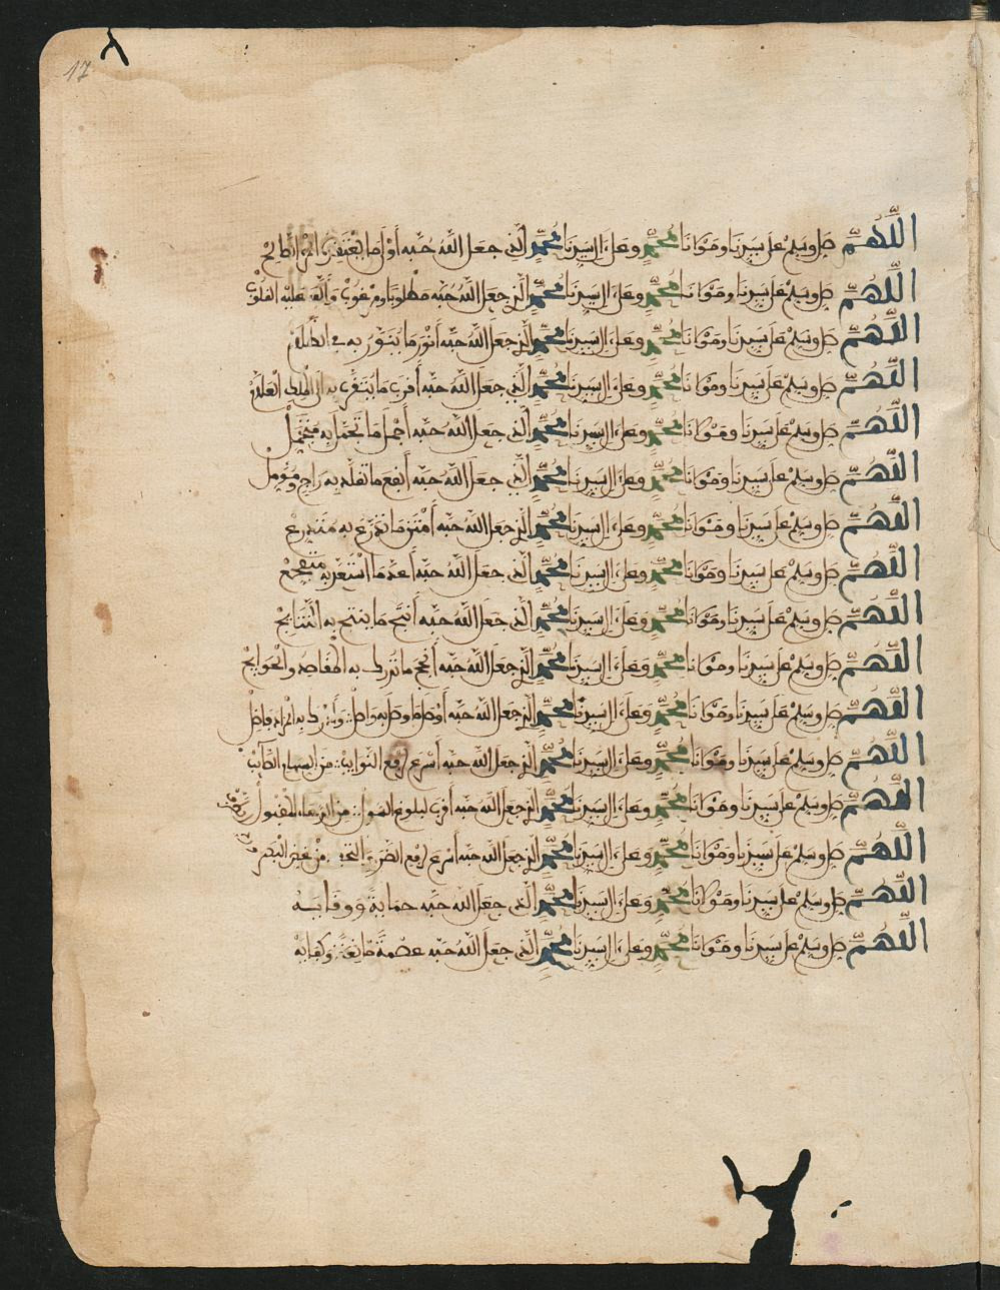 17
اللهم صل وسلم على سيدنا ومولانا محمد وعلى ءال سيدنا محمد الذي جعل الله حبه أول ما يعتقده
اللهم صل وسلم على سيدنا ومولانا محمد وعلى ءال سيدنا محمد الذي جعل الله حبه مطلوبا ومرغوب وألف عليه القلوب
اللهم صل وسلم على سيدنا ومولانا محمد وعلى ءال سيدنا محمد الذي جعل الله حبه أنور ما يتنور به في
اللهم صل وسلم على سيدنا ومولانا محمد وعلى ءال سيدنا محمد الذي جعل الله حبه أقرب ما يتقرب به
اللهم صل وسلم على سيدنا ومولانا محمد وعلى ءال سيدنا محمد الذي جعل الله حبه أجمل ما تجمل به متجمل
اللهم صل وسلم على سيدنا ومولانا محمد وعلى ءال سيدنا محمد الذي جعل الله حبه أنفع ما تقلد به راج ومؤمل
اللهم صل وسلم على سيدنا ومولانا محمد وعلى ءال سيدنا محمد الذي جعل الله حبه أمتن ما تدرع به متدرع
اللهم صل وسلم على سيدنا ومولانا محمد وعلى ءال سيدنا محمد الذي جعل الله حبه
اللهم صل وسلم على سيدنا ومولانا محمد وعلى ءال سيدنا محمد الذي جعل الله حبه أنتج ما ينتج به النتايج
اللهم صل وسلم على سيدنا ومولانا محمد وعلى ءال سيدنا محمد الذي جعل الله حبه أنجح ما تدرك به المقاصد والحوايج
اللهم صل وسلم على سيدنا ومولانا محمد وعلى ءال سيدنا محمد الذي جعل الله حبه
اللهم صل وسلم على سيدنا ومولانا محمد وعلى ءال سيدنا محمد الذي جعل الله حبه أسرع لرفع النوايب من السهام الصايب
اللهم صل وسلم على سيدنا ومولانا محمد وعلى ءال سيدنا محمد الذي جعل الله حبه أقرب لبلوغ السول من الدعاء المقبول
اللهم صل وسلم على سيدنا ومولانا محمد وعلى ءال سيدنا محمد الذي جعل الله حبه أسرع لرفع الضرر من غض البصر
اللهم صل وسلم على سيدنا ومولانا محمد وعلى ءال سيدنا محمد الذي جعل الله حبه حماية ووقاية
اللهم صل وسلم على سيدنا ومولانا محمد وعلى ءال سيدنا محمد الذي جعل الله حبه عصمة مانعة وكفاية